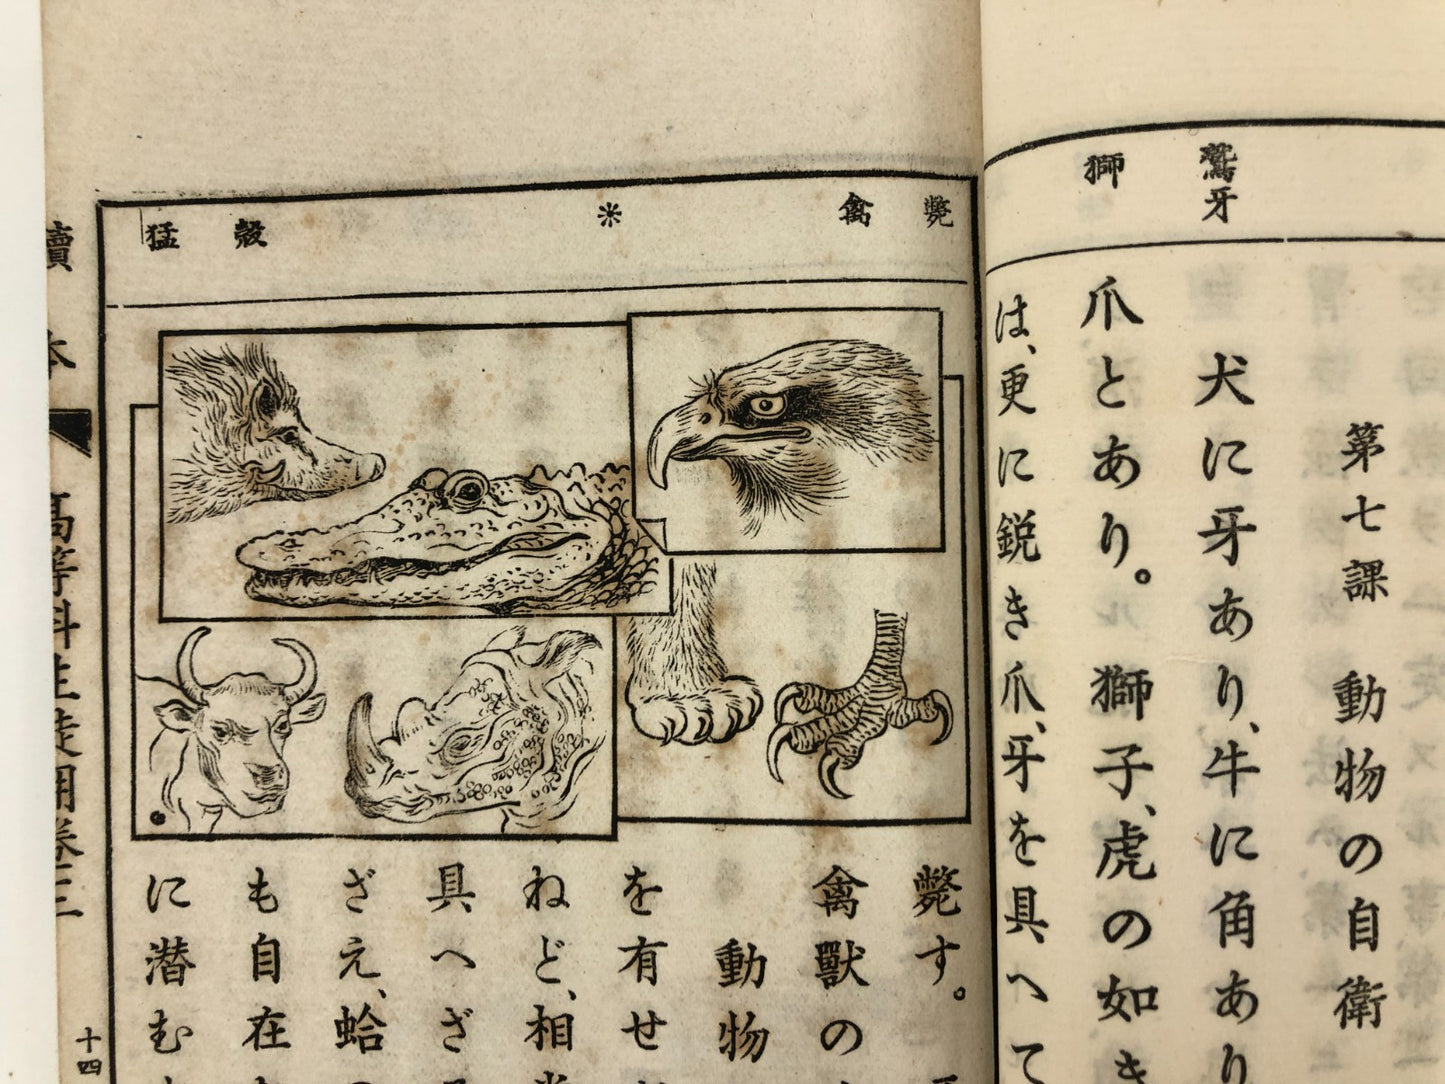 鷲牙
獅
第七課 動物の自衛
犬に牙あり、牛に角あり
爪とあり。獅子、虎の如き
は、更に鋭き爪、牙を具へて
斃
禽
*
殻
猛
斃す。
禽獸の
動物
を有せ
ねど、相
具へざ
ざえ、蛤
も自在
に潜む
讀本
高等科生徒用卷三
十四